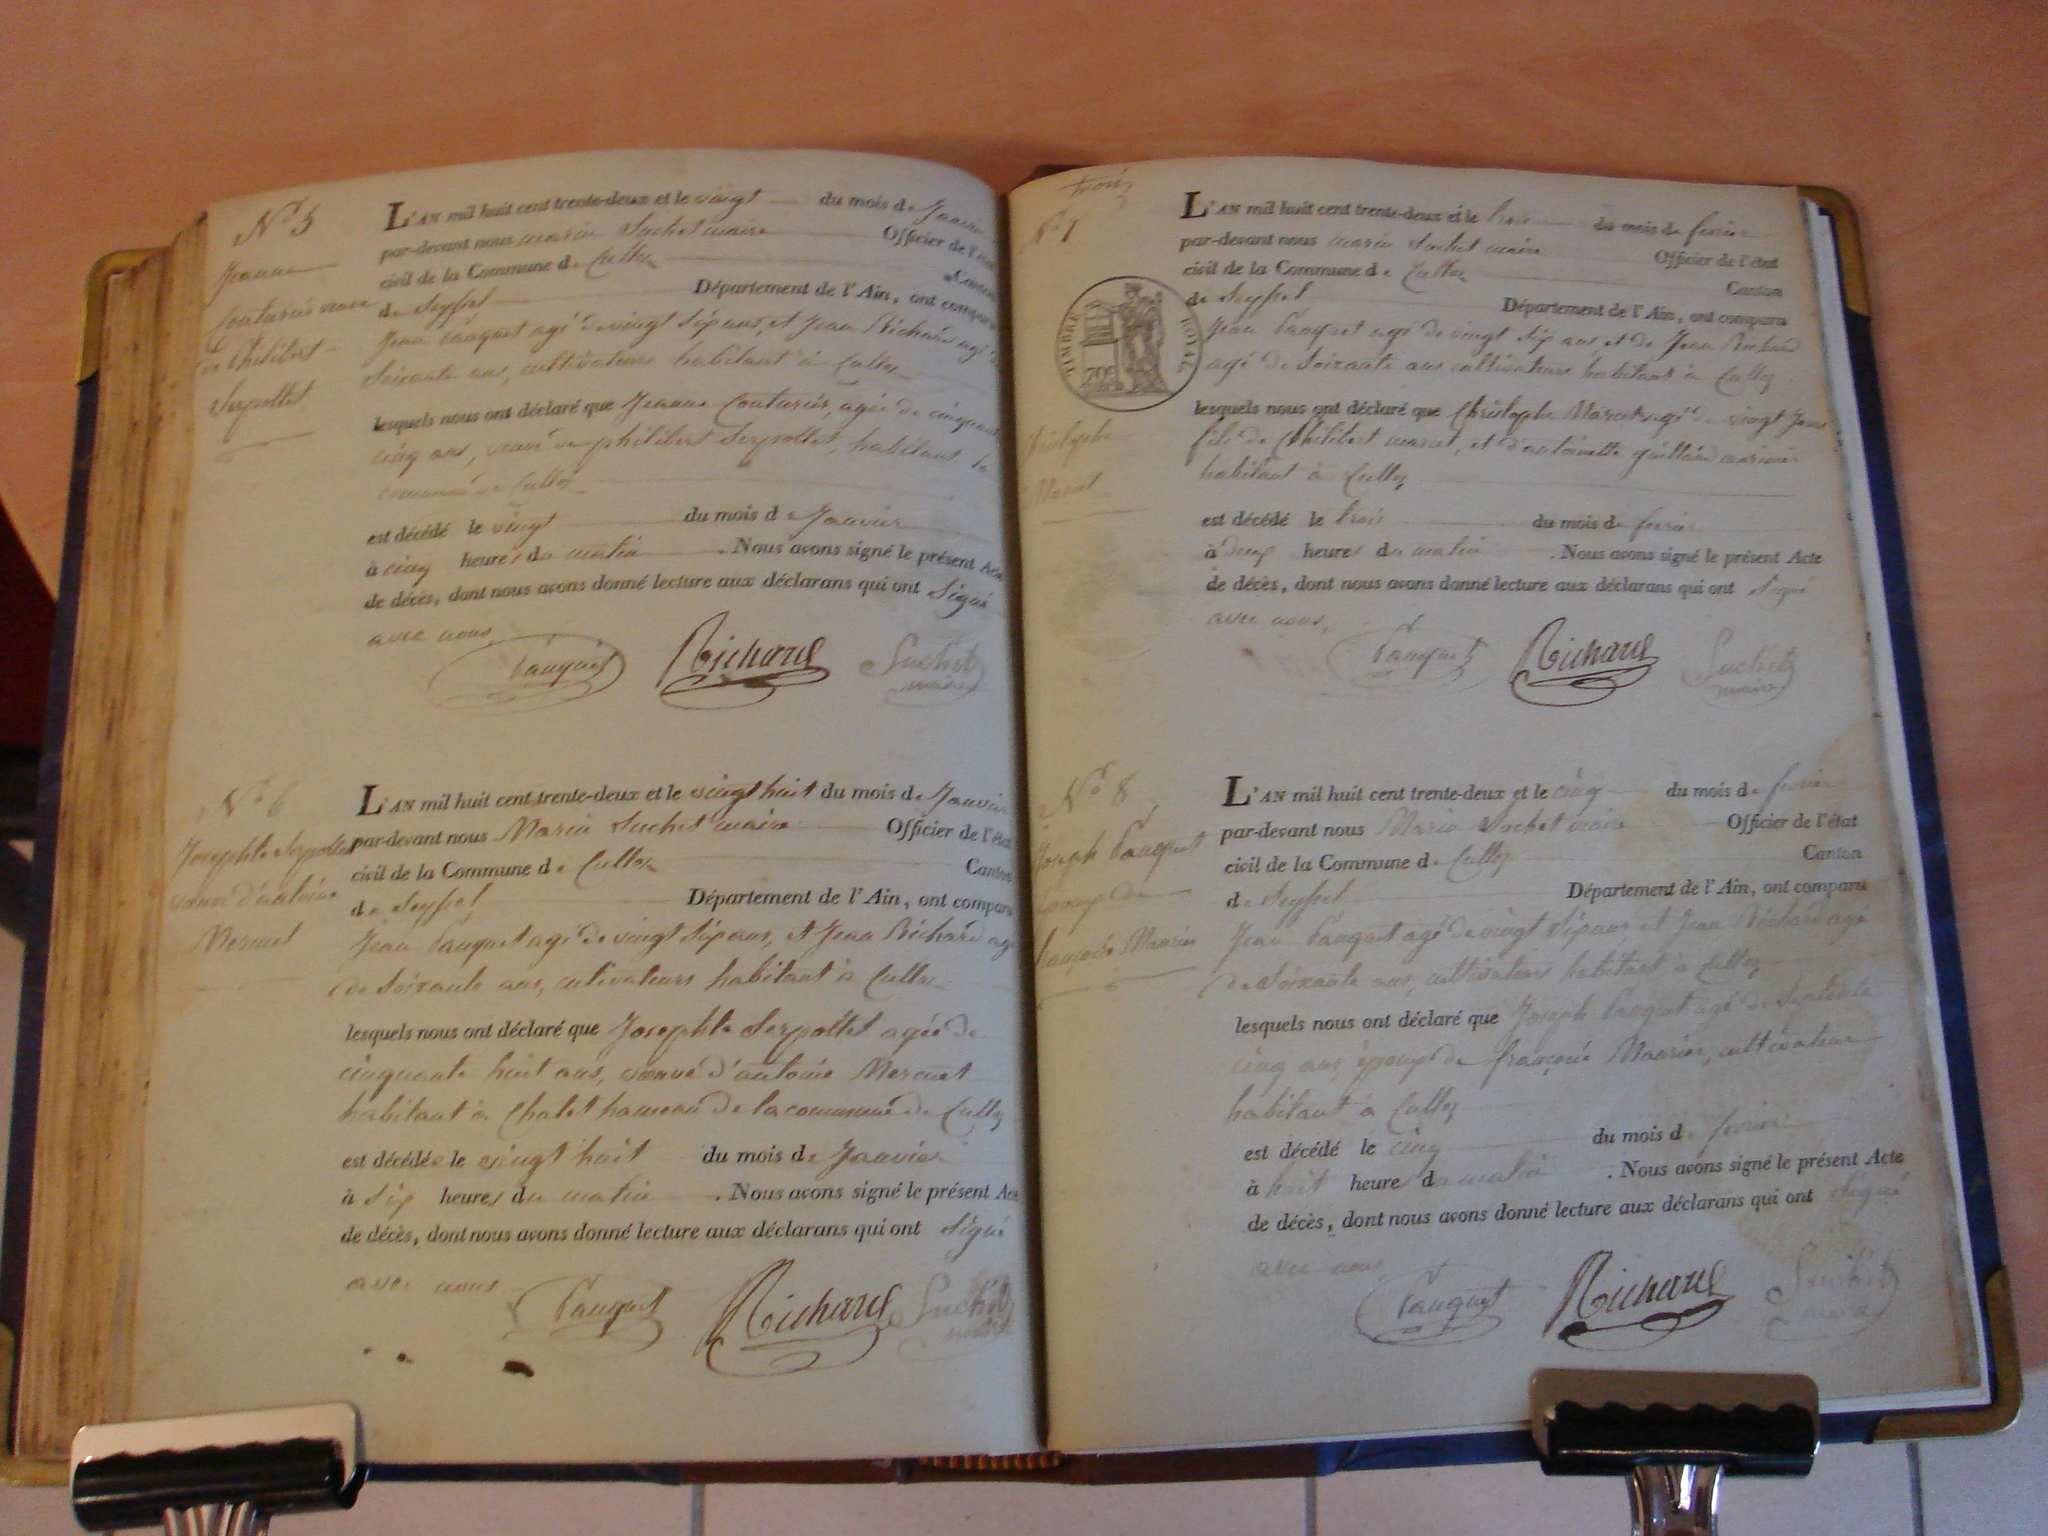 N° 5
Jeanne
Couturier veuve
de Philibert
Serpollet
L'AN mil huit cent trente-deux et le vingt du mois de Janvier
par-devant nous marin Suchet maire Officier de l'état
civil de la Commune de Culloz Canton
de Seyssel Département de l'Ain, ont comparu
Jean Pauquet agé de vingt sep ans, et Jean Richard agé de
Soixante ans, cultivateurs habitant à Culloz
lesquels nous ont déclaré que Jeanne Couturier, agée de cinquante
cinq ans, veuve de philibert Serpollet, habitant la
commune de Culloz
est décédé le vingt du mois de Janvier
à cinq heures du matin. Nous avons signé le présent Acte
de décès, dont nous avons donné lecture aux déclarans qui ont Signé
avec nous
Pauquet Richard Suchet
maire
N° 6
Josephte Serpollet
veuve d'antoine
Mercuet
L'AN mil huit cent trente-deux et le vingt huit du mois de Janvier
par-devant nous Marin Suchet maire Officier de l'état
civil de la Commune de Culloz Canton
de Seyssel Département de l'Ain, ont comparu
Jean Pauquet agé de vingt Sep ans, et Jean Richard agé
de Soixante ans, cultivateurs habitant à Culloz
lesquels nous ont déclaré que Josephte Serpollet agée de
cinquante huit ans, veuve d'antoine Mercuet
habitant à Chatel hameau de la commune de Culloz
est décédée le vingt huit du mois de Janvier
à Sep heures du matin. Nous avons signé le présent Acte
de décès, dont nous avons donné lecture aux déclarans qui ont Signé
avec nous
Pauquet Richard Suchet
maire
trois
N° 7
TIMBRE ROYAL
70c
Christophe
Marcet
L'AN mil huit cent trente-deux et le trois du mois de fevrier
par-devant nous marin Suchet maire Officier de l'état
civil de la Commune de Culloz Canton
de Seyssel Département de l'Ain, ont comparu
Jean Pauquet agé de vingt Sep ans, et de Jean Richard
agé de Soixante ans cultivateurs habitant à Culloz
lesquels nous ont déclaré que Christophe Marcet agé de vingt Jours
fils de Philibert marcet, et d'antoinette
habitant à Culloz
est décédé le trois du mois de fevrier
à deux heures du matin. Nous avons signé le présent Acte
de décès, dont nous avons donné lecture aux déclarans qui ont Signé
avec nous,
Pauquet Richard Suchet
maire
N° 8
Joseph Pauquet
époux de
françoise Maurier
L'AN mil huit cent trente-deux et le cinq du mois de fevrier
par-devant nous Marin Suchet maire Officier de l'état
civil de la Commune de Culloz Canton
de Seyssel Département de l'Ain, ont comparu
Jean Pauquet agé de vingt Sep ans, et Jean Richard agé
de Soixante ans, cultivateurs habitant à Culloz
lesquels nous ont déclaré que Joseph Pauquet agé de Septente
cinq ans, époux de françoise Maurier, cultivateur
habitant à Culloz
est décédé le cinq du mois de fevrier
à huit heures du matin. Nous avons signé le présent Acte
de décès, dont nous avons donné lecture aux déclarans qui ont Signé
avec nous
Pauquet Richard Suchet
maire